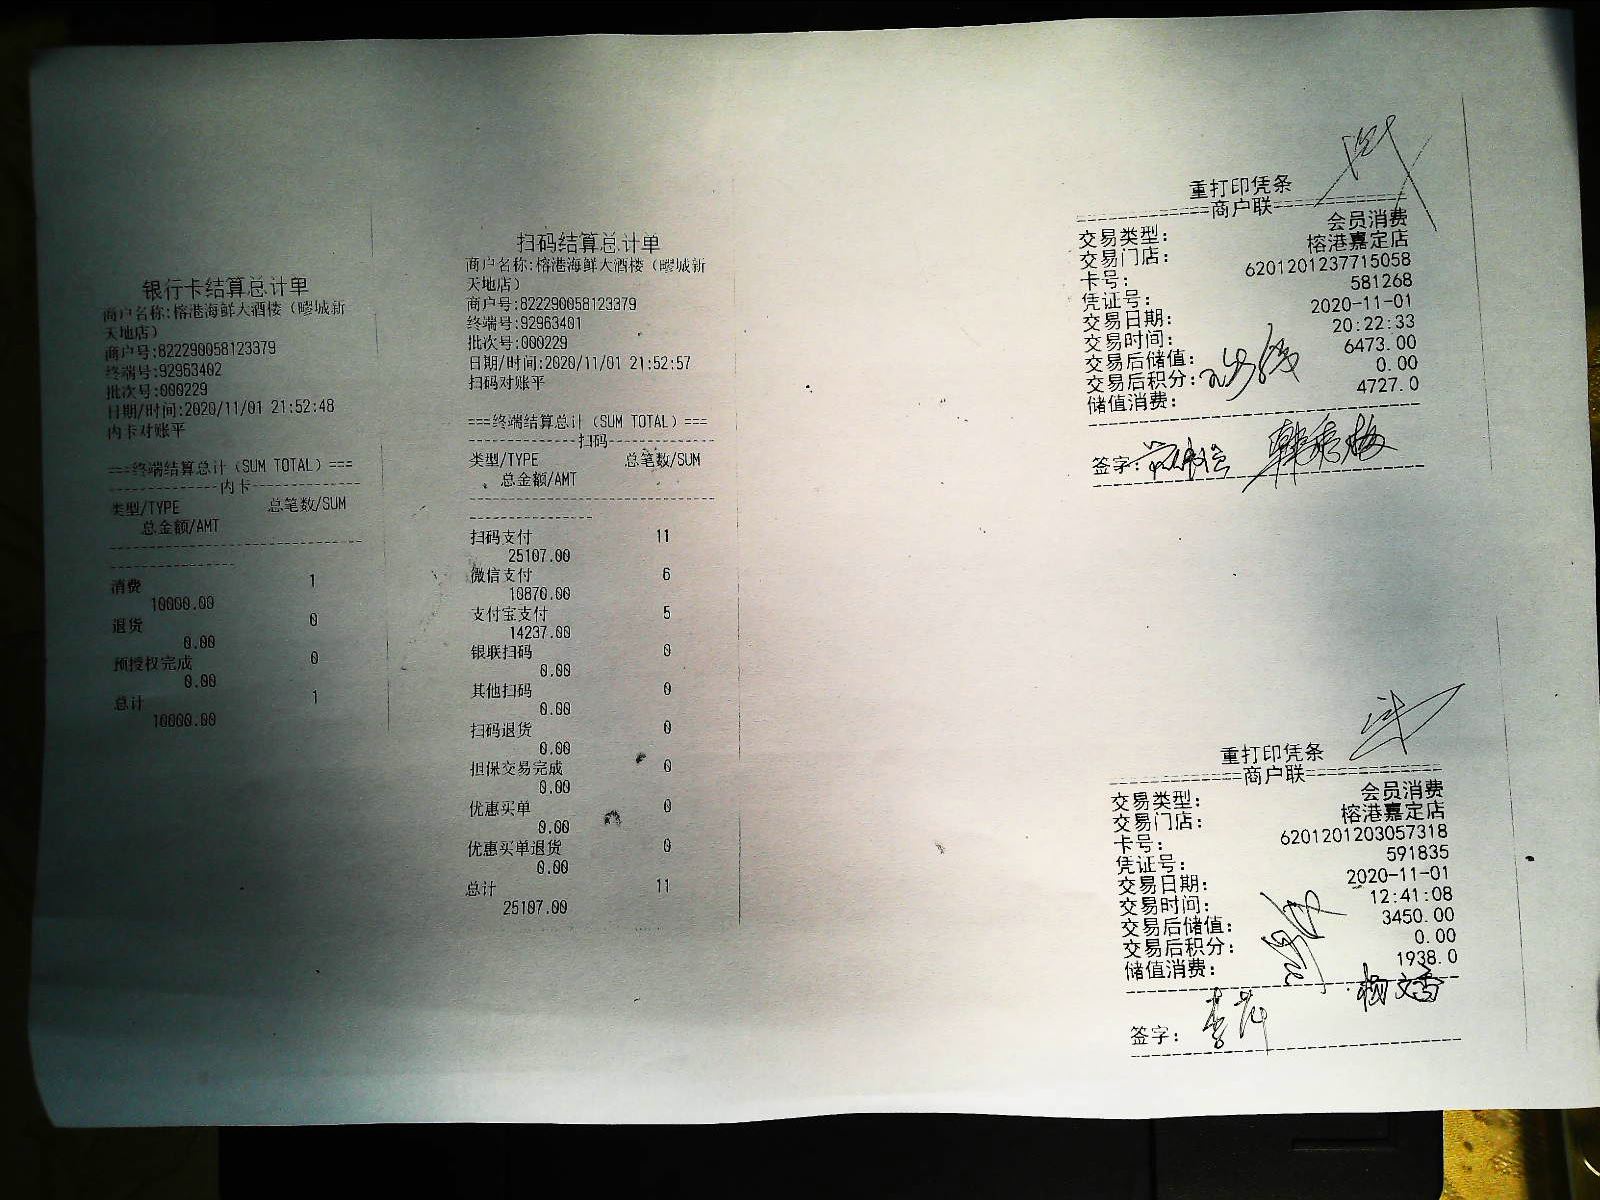 银行卡结算总计单
商户名称:榕港海鲜大酒楼（疁城新
天地店）
商户号:822290058123379
终端号:92963402
批次号:000229
日期/时间:2020/11/01 21:52:48
内卡对账平
===终端结算总计（SUM TOTAL）===
---------------内卡---------------
类型/TYPE 总笔数/SUM
总金额/AMT
消费 1
10000.00
退货 0
0.00
预授权完成 0
0.00
总计 1
10000.00
扫码结算总计单
商户名称:榕港海鲜大酒楼（疁城新
天地店）
商户号:822290058123379
终端号:92963401
批次号:000229
日期/时间:2020/11/01 21:52:57
扫码对账平
===终端结算总计（SUM TOTAL）===
---------------扫码---------------
类型/TYPE 总笔数/SUM
总金额/AMT
扫码支付 11
25107.00
微信支付 6
10870.00
支付宝支付 5
14237.00
银联扫码 0
0.00
其他扫码 0
0.00
扫码退货 0
0.00
担保交易完成 0
0.00
优惠买单 0
0.00
优惠买单退货 0
0.00
总计 11
25107.00
重打印凭条
商户联
交易类型: 会员消费
交易门店: 榕港嘉定店
卡号: 6201201237715058
凭证号: 581268
交易日期: 2020-11-01
交易时间: 20:22:33
交易后储值: 6473.00
交易后积分: 0.00
储值消费: 4727.0
签字: 韩秀梅
重打印凭条
商户联
交易类型: 会员消费
交易门店: 榕港嘉定店
卡号: 6201201203057318
凭证号: 591835
交易日期: 2020-11-01
交易时间: 12:41:08
交易后储值: 3450.00
交易后积分: 0.00
储值消费: 1938.0
杨文香
签字: